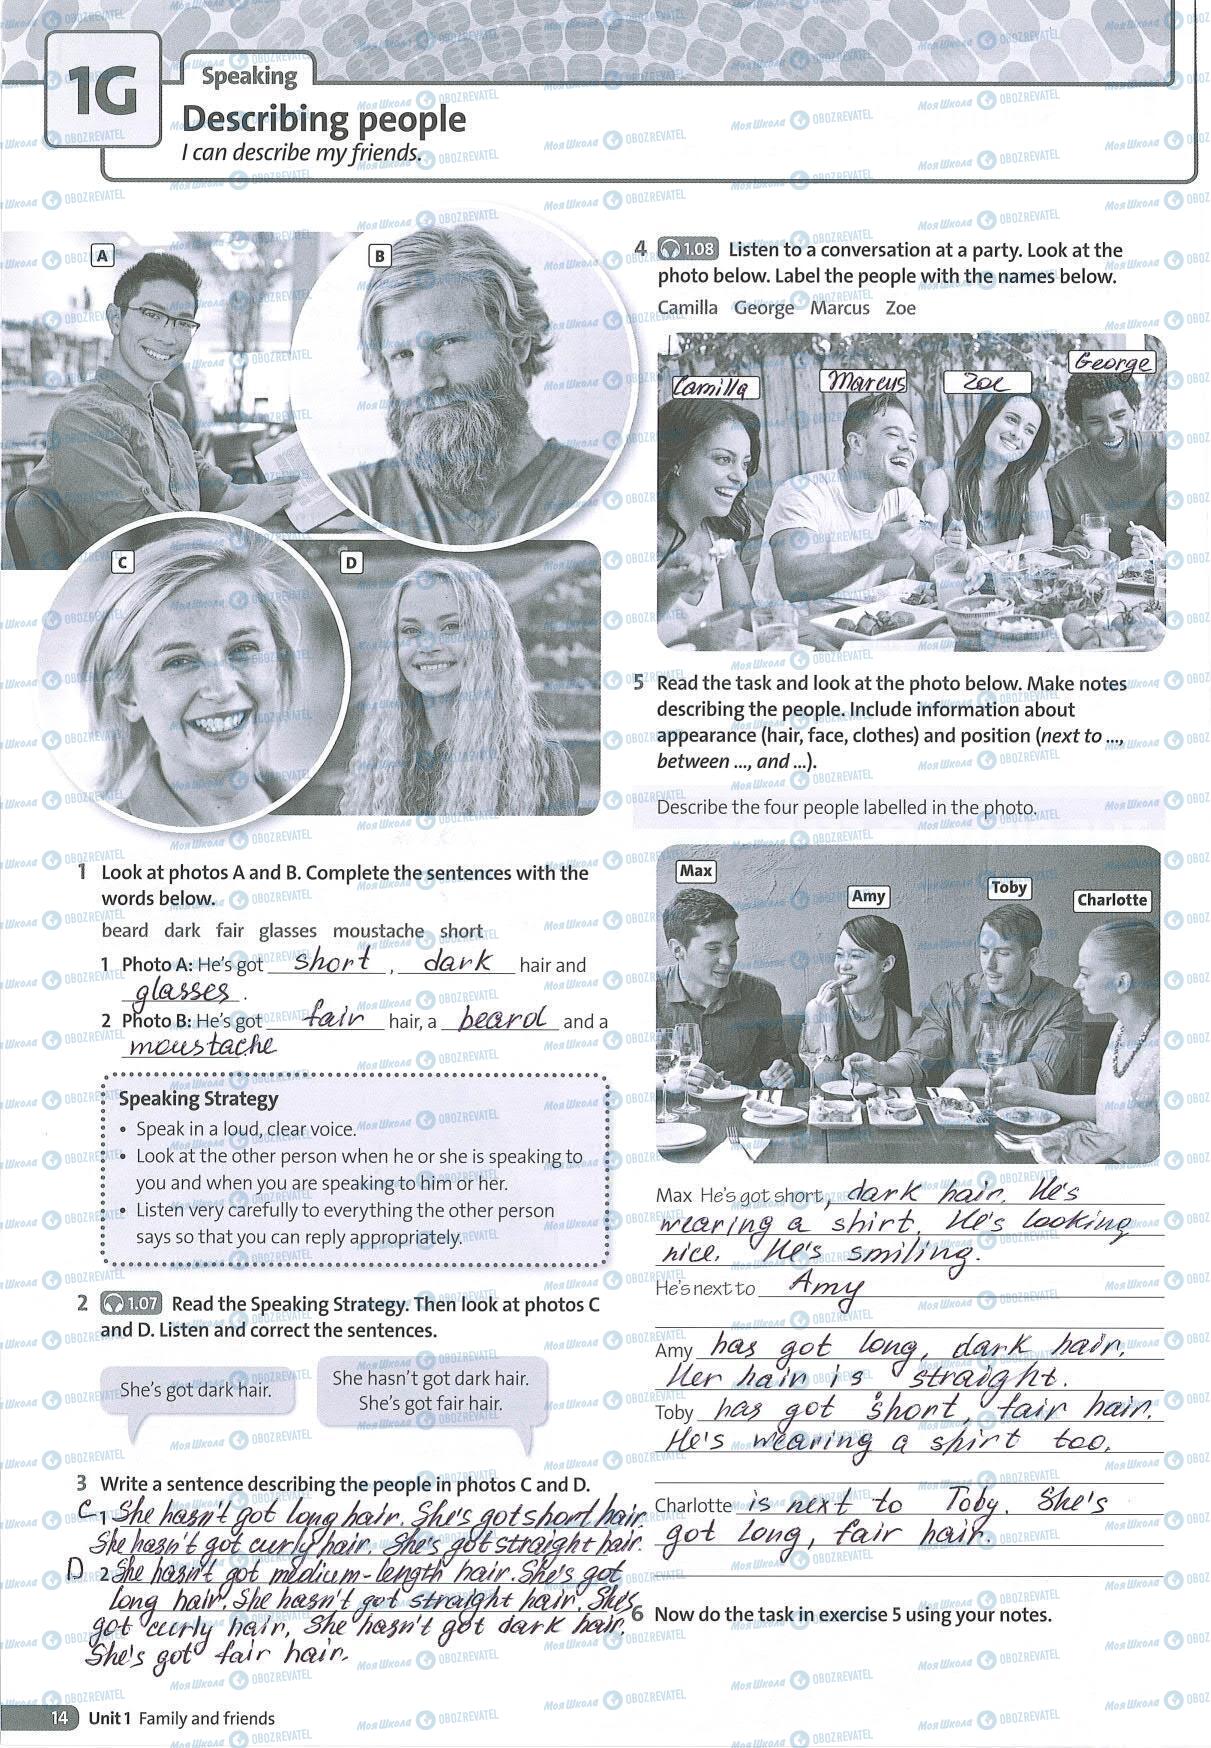 1G
Speaking
Describing people
I can describe my friends.
A
B
C
D
1 Look at photos A and B. Complete the sentences with the
words below.
beard dark fair glasses moustache short
1 Photo A: He's got short, dark hair and
glasses.
2 Photo B: He's got fair hair, a beard and a
moustache
Speaking Strategy
• Speak in a loud, clear voice.
• Look at the other person when he or she is speaking to
you and when you are speaking to him or her.
• Listen very carefully to everything the other person
says so that you can reply appropriately.
2 1.07 Read the Speaking Strategy. Then look at photos C
and D. Listen and correct the sentences.
She's got dark hair.
She hasn't got dark hair.
She's got fair hair.
3 Write a sentence describing the people in photos C and D.
C 1 She hasn't got long hair. She's got short hair
She hasn't got curly hair. She's got straight hair.
D 2 She hasn't got medium-length hair. She's got
long hair. She hasn't got straight hair. She's
got curly hair, She hasn't got dark hair.
She's got fair hair.
4 1.08 Listen to a conversation at a party. Look at the
photo below. Label the people with the names below.
Camilla George Marcus Zoe
Camilla
Marcus
Zoe
George
5 Read the task and look at the photo below. Make notes
describing the people. Include information about
appearance (hair, face, clothes) and position (next to ...,
between ..., and ...).
Describe the four people labelled in the photo.
Max
Amy
Toby
Charlotte
Max He's got short, dark hair. He's
wearing a shirt. He's looking
nice. He's smiling.
He's next to Amy
Amy has got long, dark hair.
Her hair is straight.
Toby has got short, fair hair.
He's wearing a shirt too.
Charlotte is next to Toby. She's
got long, fair hair.
6 Now do the task in exercise 5 using your notes.
14 Unit 1 Family and friends
МояШкола OBOZREVATEL